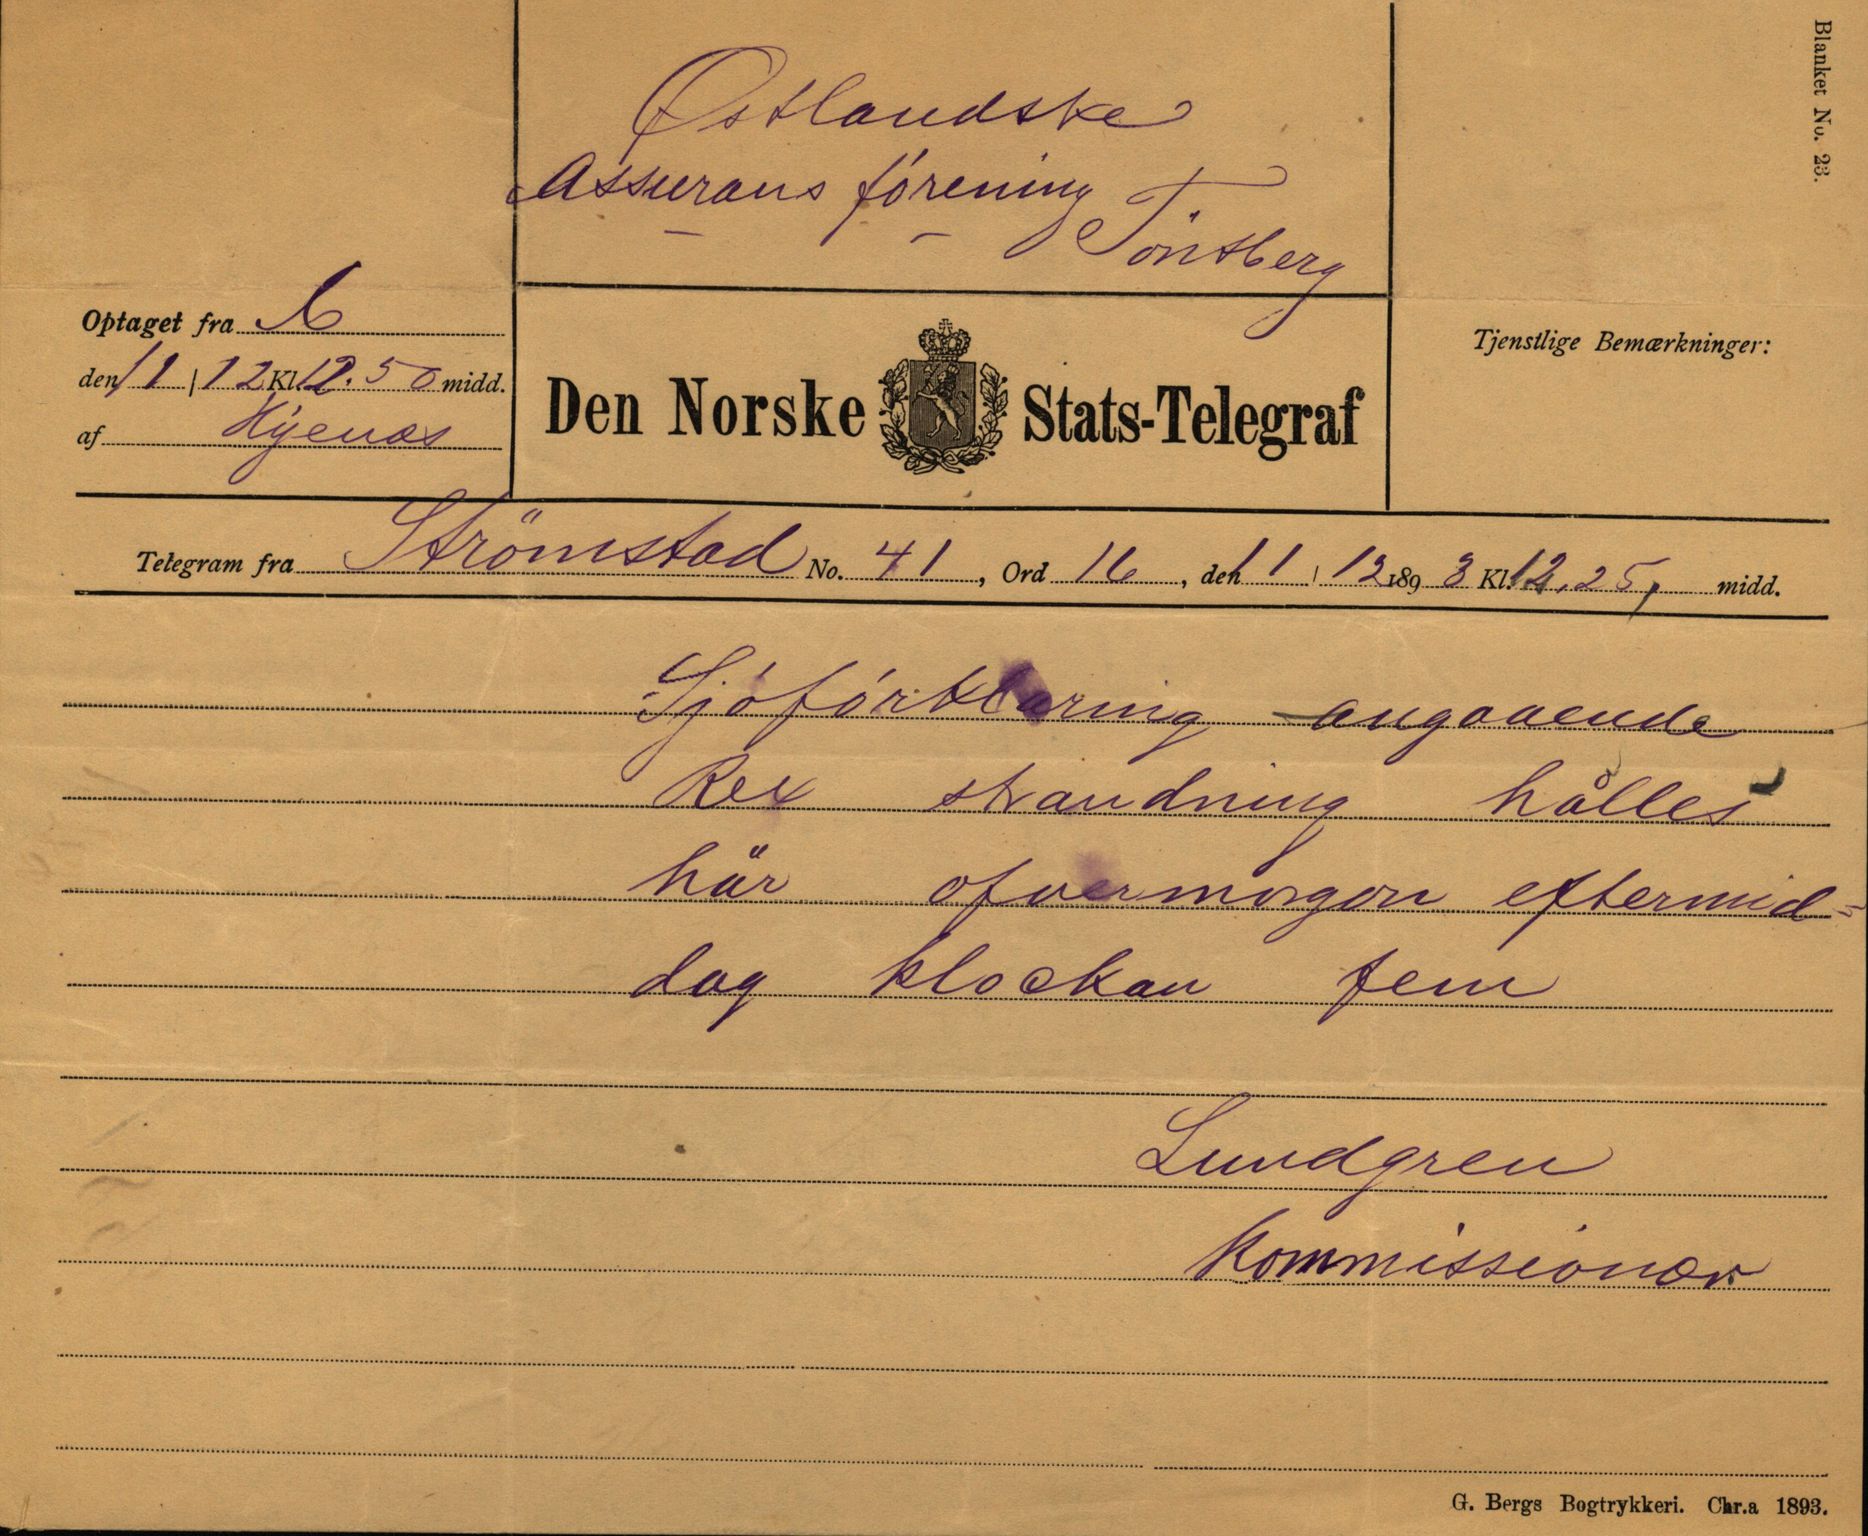 Blanket No. 23.
Østlandske
Assurans förening
Tönsberg
Optaget fra
den 11 / 12 Kl. 12.50 midd.
af Hyenæs
Den Norske Stats-Telegraf
Tjenstlige Bemærkninger:
Telegram fra Strömstad No. 41, Ord 16, den 11 / 12 1893 Kl. 12.25, midd.
Sjóförklaring angaaende
Rex strandning hålles
här ofvermorgon eftermid-
dag klockan fem
Lundgren
Kommissionær
G. Bergs Bogtrykkeri. Chr.a 1893.